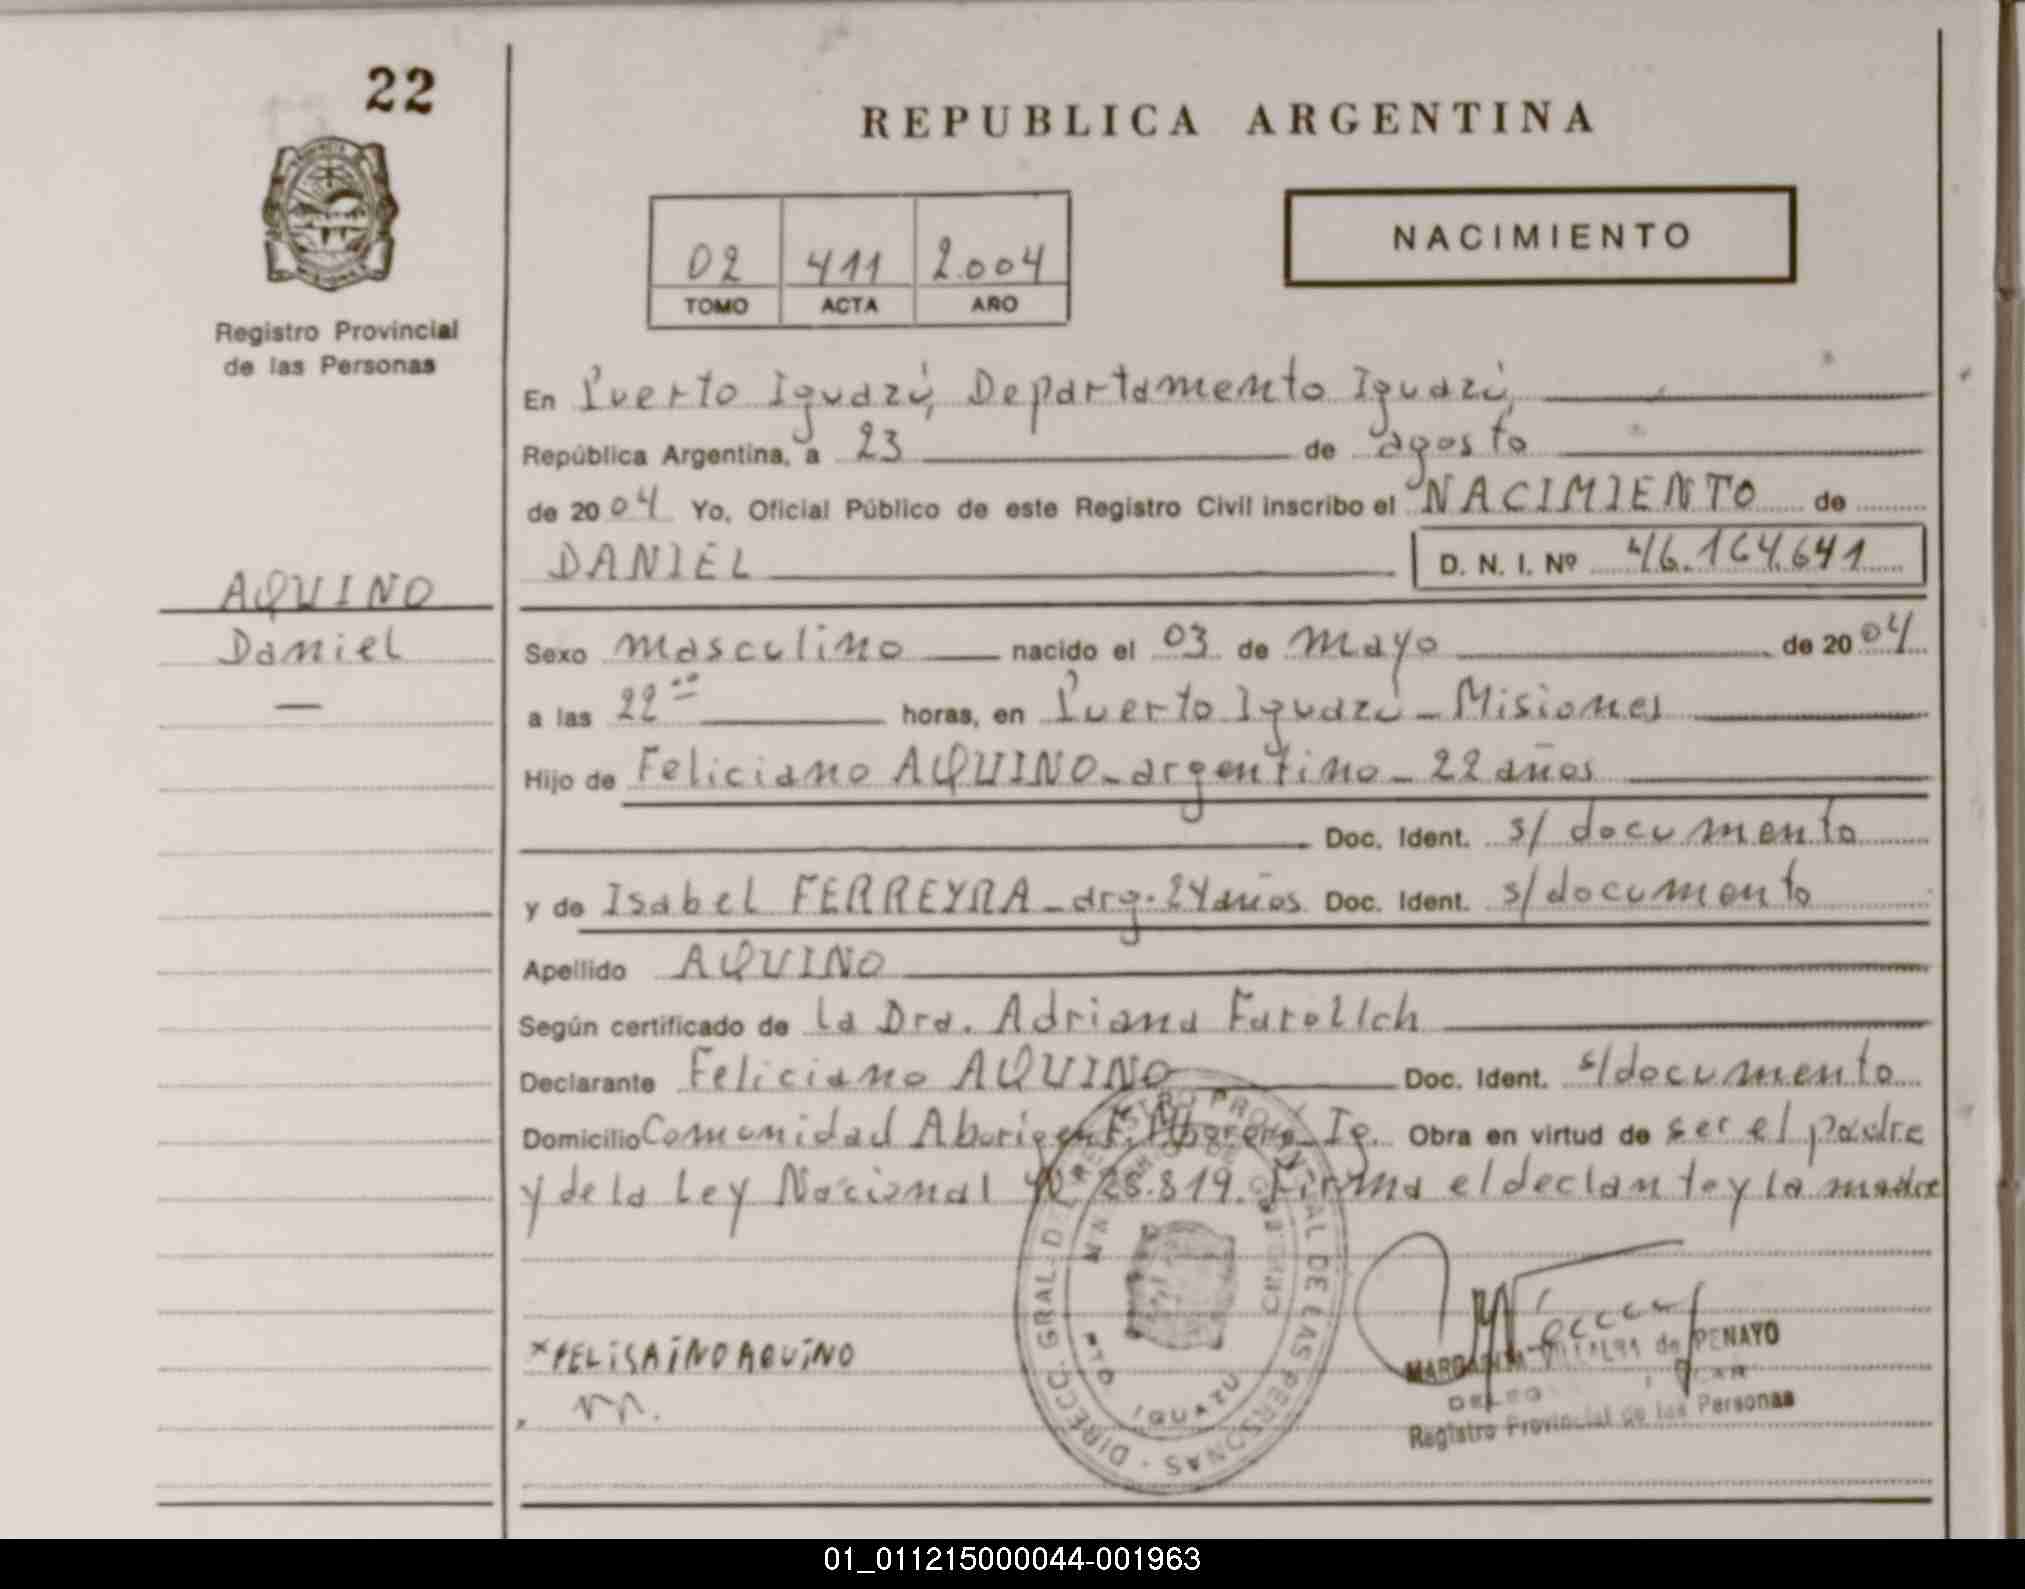 22
REPUBLICA ARGENTINA
NACIMIENTO
02 411 2.004
TOMO ACTA AÑO
Registro Provincial
de las Personas
En Puerto Iguazú, Departamento Iguazú,
República Argentina, a 23 de agosto
de 2004 Yo, Oficial Público de este Registro Civil inscribo el NACIMIENTO de
DANIEL D. N. I. Nº 46.164.641
AQUINO
Daniel
Sexo masculino nacido el 03 de mayo de 2004
a las 22⁰⁰ horas, en Puerto Iguazú - Misiones
Hijo de Feliciano AQUINO - argentino - 22 años
Doc. Ident. s/ documento
y de Isabel FERREYRA - arg. 24 años Doc. Ident. s/documento
Apellido AQUINO
Según certificado de la Dra. Adriana
Declarante Feliciano AQUINO Doc. Ident. s/documento
Domicilio Comunidad Ig. Obra en virtud de ser el padre
y de la Ley Nacional Nº 25.819. Firma el declante y la madre
*FELISAINO AQUINO
DIRECC. GRAL. DEL REGISTRO PROVINCIAL DE LAS PERSONAS
PTO IGUAZU
de PENAYO
Registro Provincial de las Personas
01_011215000044-001963